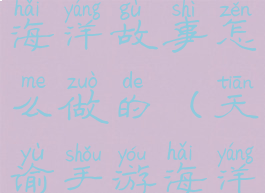 hǎi yáng gù shì zěn
海洋故事怎
me zuò de tiān
么做的（天
yù shǒu yóu hǎi yáng
谕手游海洋